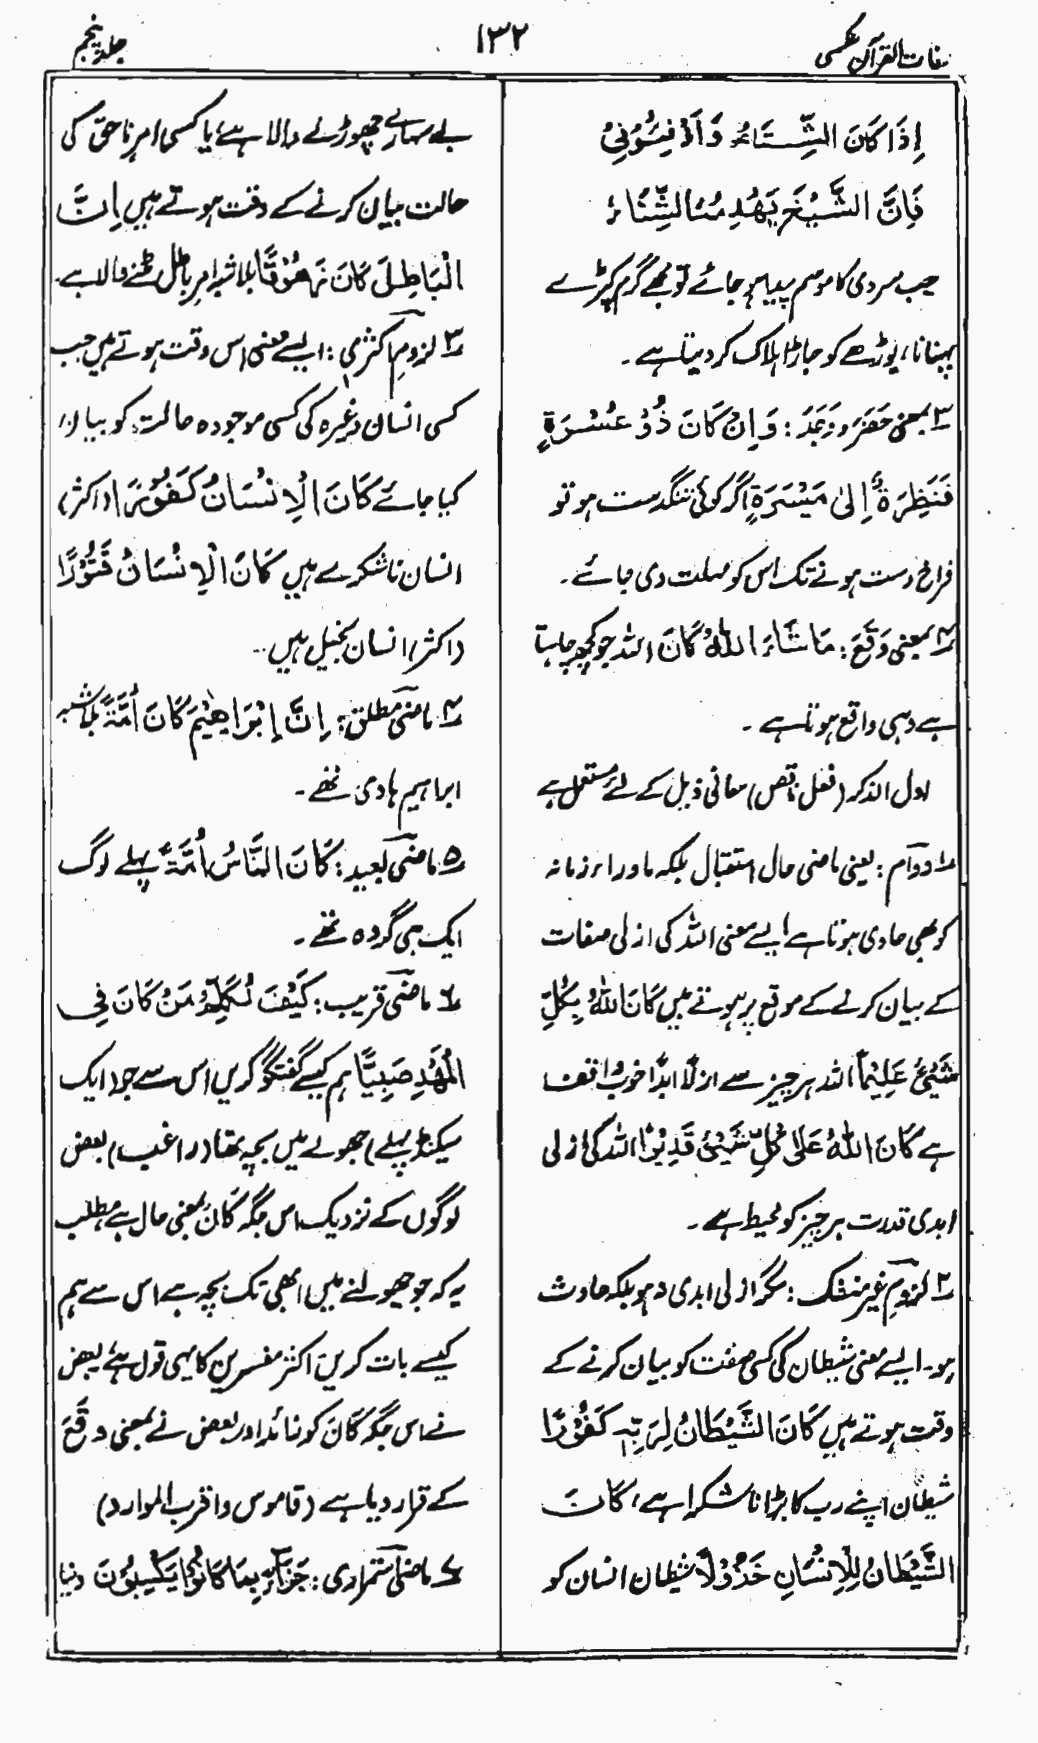 لغات القرآن عکسی
۱۳۲
جلد پنجم
اِذَا کَانَ الشِّتَاءُ فَاَدْفِئُوْنِیْ
فَاِنَّ الشَّیْخَ یَهْدِمُهُ الشِّتَاءُ
جب سردی کا موسم پیدا ہو جائے تو مجھے گرم کپڑے
پہنانا، بوڑھے کو جاڑا ہلاک کر دیتا ہے ۔
۳ بمعنی حَضَرَ و وَجَدَ : وَ اِنْ کَانَ ذُوْ عُسْرَةٍ
فَنَظِرَةٌ اِلیٰ مَیْسَرَةٍ اگر کوئی تنگدست ہو تو
فراخ دست ہونے تک اس کو مہلت دی جائے ۔
۴ بمعنی وَقَعَ : مَا شَاءَ اللّٰهُ کَانَ اللہ جو کچھ چاہتا
ہے وہی واقع ہوتا ہے ۔
اول الذکر (فعل ناقص) معانی ذیل کے لئے مستعمل ہے
۱ دوام : یعنی ماضی حال استقبال بلکہ ماوراء زمانہ
کو بھی حاوی ہوتا ہے ایسے معنی اللہ کی ازلی صفات
کے بیان کرنے کے موقع پر ہوتے ہیں کَانَ اللّٰهُ بِکُلِّ
شَیْئٍ عَلِیْماً اللہ ہر چیز سے ازلاً ابداً خوب واقف
ہے کَانَ اللّٰهُ عَلٰی کُلِّ شَیْئٍ قَدِیْراً اللہ کی ازلی
ابدی قدرت ہر چیز کو محیط ہے ۔
۲ لزوم غیر منفک : مگر ازلی ابدی نہ ہو بلکہ حادث
ہو۔ ایسے معنی شیطان کی کسی صفت کو بیان کرنے کے
وقت ہوتے ہیں کَانَ الشَّیْطَانُ لِرَبِّهٖ کَفُوْرًا
شیطان اپنے رب کا بڑا ناشکرا ہے ، کَانَ
الشَّیْطَانُ لِلْاِنْسَانِ خَذُوْلًا شیطان انسان کو
بے سہارے چھوڑنے والا ہے یا کسی امر ناحق کی
حالت بیان کرنے کے وقت ہوتے ہیں اِنَّ
الْبَاطِلَ کَانَ زَهُوْقًا بلا شبہ امر باطل مٹنے والا ہے۔
۳ لزوم اکثری : ایسے معنی اس وقت ہوتے ہیں جب
کسی انسان وغیرہ کی کسی موجودہ حالت کو بیان
کیا جائے کَانَ الْاِنْسَانُ کَفُوْرًا (اکثر)
انسان ناشکرے ہیں کَانَ الْاِنْسَانُ قَتُوْرًا
(اکثر) انسان بخیل ہیں۔
۴ ماضی مطلق : اِنَّ اِبْرَاهِیْمَ کَانَ اُمَّةً بلا شبہ
ابراہیم ہادی تھے ۔
۵ ماضی بعید : کَانَ النَّاسُ اُمَّةً پہلے لوگ
ایک ہی گروہ تھے ۔
۶ ماضی قریب : کَیْفَ نُکَلِّمُ مَنْ کَانَ فِی
الْمَهْدِ صَبِیًّا ہم کیسے گفتگو کریں اس سے جو (ایک
سیکنڈ پہلے) جھولے میں بچہ تھا (راغب) بعض
لوگوں کے نزدیک اس جگہ کَانَ بمعنی حال ہے مطلب
یہ کہ جو جھولنے میں ابھی تک بچہ ہے اس سے ہم
کیسے بات کریں اکثر مفسرین کا یہی قول ہے بعض
نے اس جگہ کَانَ کو زائد اور بعض نے بمعنی وَقَعَ
کے قرار دیا ہے (قاموس و اقرب الموارد)
۷ ماضی استمراری : جَزَاءً بِمَا کَانُوْا یَکْسِبُوْنَ دنیا